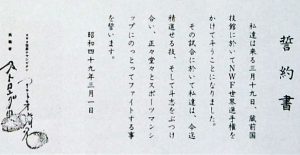 誓約書
私達は来る三月十九日、蔵前国
技館に於いてNWF世界選手権を
かけて斗うことになりました。
その試合に於いて私達は、今迄
精進せる技、そして斗志をぶつけ
合い、正々堂々とスポーツマンシ
ップにのっとってファイトする事
を誓います。
昭和四十九年三月一日